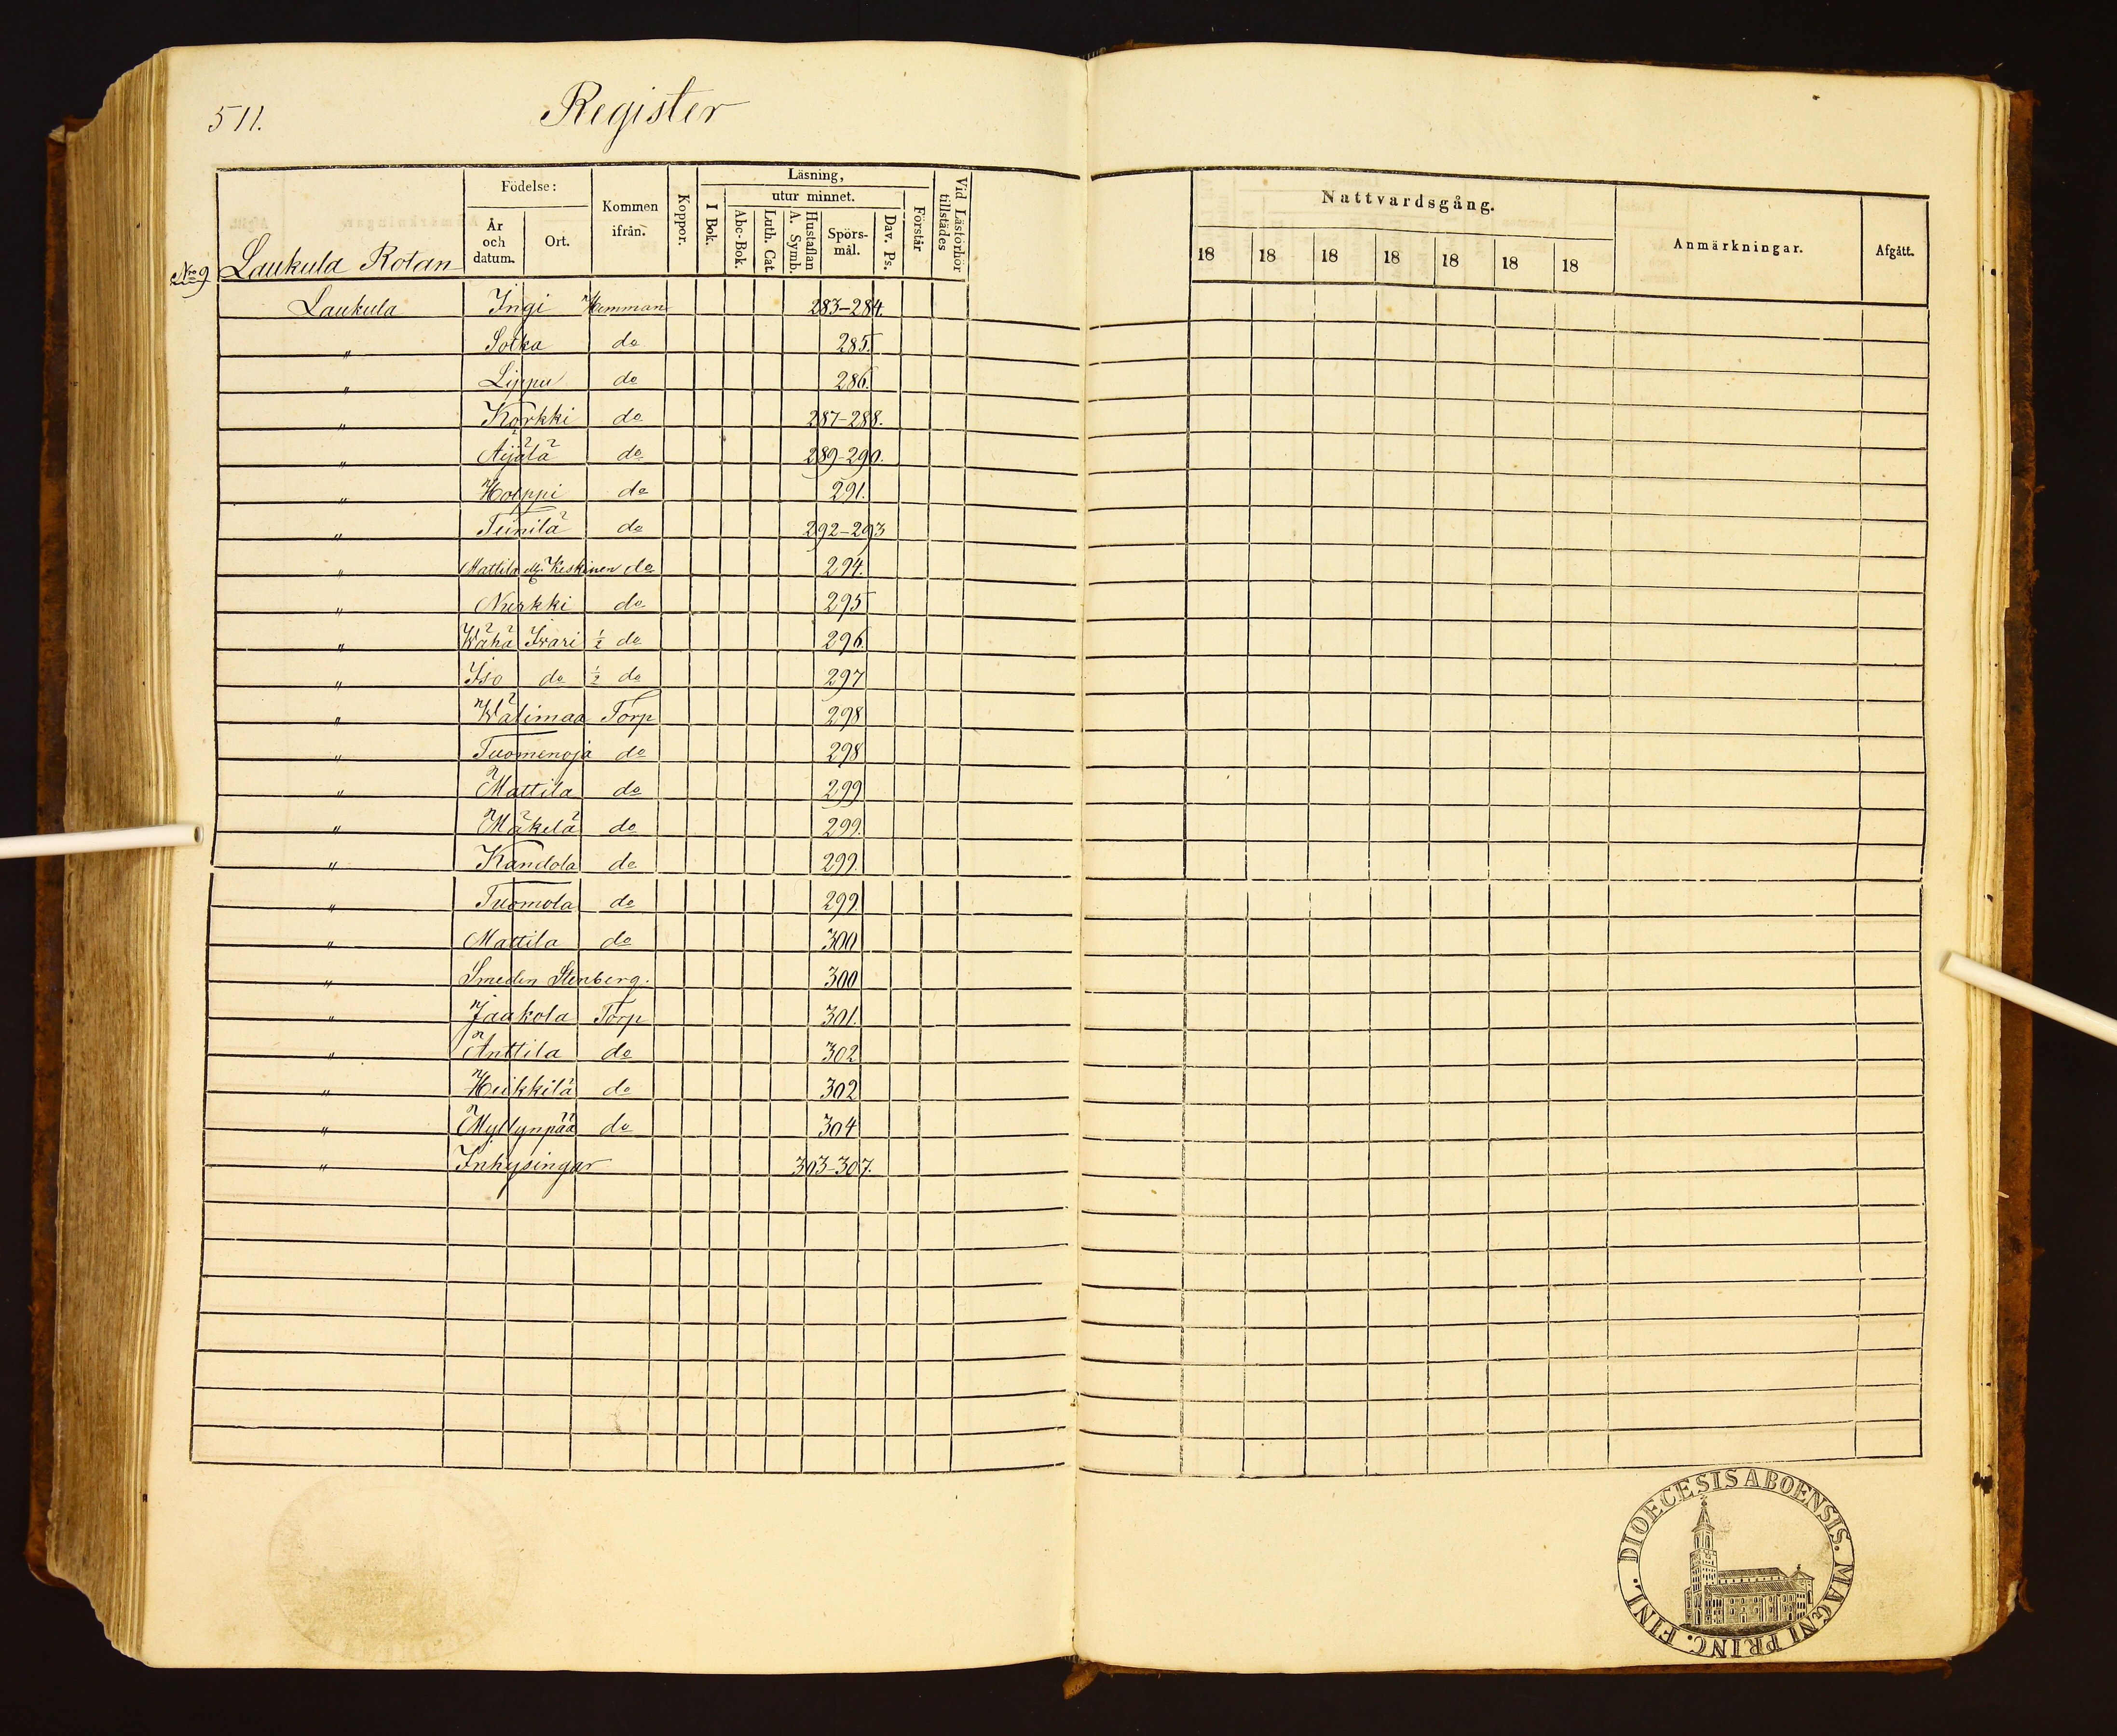 511. Register
Födelse: År och datum. Ort. Kommen ifrån. Koppor. Läsning, I Bok. utur minnet. Abc-Bok. Luth. Cat. Hustaflan A. Symb. Spörs-mål. Dav. Ps. Förstår Vid Läsförhör tillstädes
Nattvardsgång. 18 18 18 18 18 18 18 Anmärkningar. Afgått.
Nro 9 Laukula Rotan
Laukula Ingi Hemman 283-284.
" Sotka do 285.
" Lippu do 286.
" Korkki do 287-288.
" Äijälä do 289-290.
" Hoippi do 291.
" Teinilä do 292-293
" Mattila ell. Keskinen do 294.
" Nurkki do 295
" Wähä Iivari ½ do 296
" Iso do ½ do 297
" Wälimaa Torp 298
" Tuomenoja do 298
" Mattila do 299
" Mäkelä do 299.
" Kandola do 299.
" Tuomola do 299.
" Mattila do 300
" Smeden Stenberg. 300
" Jaakola Torp 301.
" Anttila do 302
" Heikkilä do 302
" Myllynpää do 304
" Inhysingar 303-307.
DIOECESIS ABOENSIS. MAGNI PRINC. FINL.